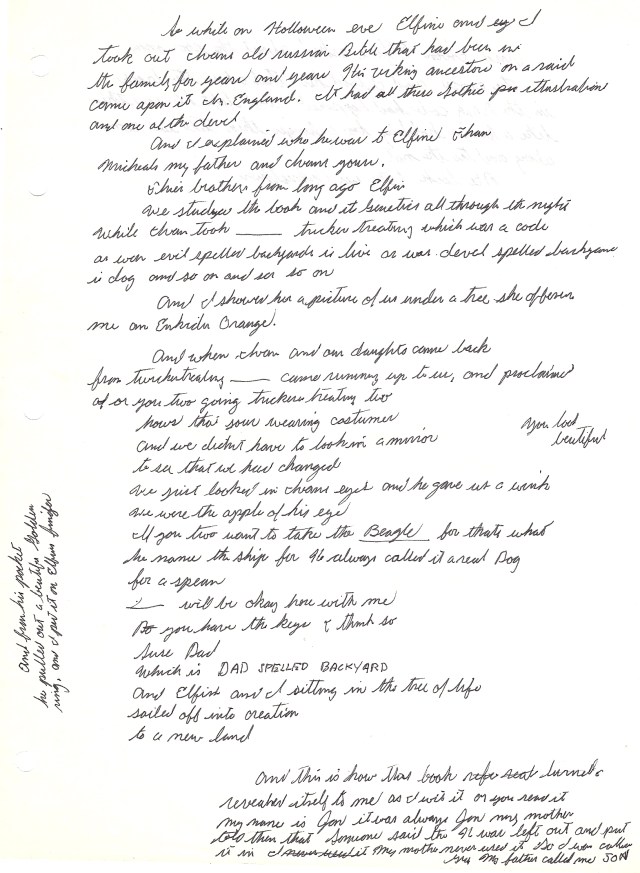 So while on Halloween eve Elfini and I
took out Ivans old russian Bible that had been in
the family for years and years His viking ancestors on a raid
came apon it in England. It had all these Gothic pen illustration
and one of the devel
And I explained who he was to Elfini
Micheals my father and Ivans yours.
Their brothers from long ago Elfin
We studyed the book and it Genetics all through the night
While Ivan took ____ tricker treating which was a code
as was evil spelled backyards is live as was devel spelled backyard
is dog and so on and so on
And I showed her a picture of us under a tree she offering
me an Enkidu Orange.
And when Ivan and our daughter came back
from ____ came running up to us, and proclaimed
are you two going trickers treating too
hows that your wearing costumes
and we didnt have to look in a mirror
to see that we had changed
You look
beautiful
We just looked in Ivans eyes and he gave us a wink
We were the apple of his eye
If you two want to take the Beagle for thats what
he name the ship for He always called it a real Dog
for a spean
____ will be okay here with me
Do you have the keys I think so
Sure Dad
Which is DAD SPELLED BACKYARD
And Elfini and I sitting in the tree of life
sailed off into creation
to a new land
And from his pocket
he pulled out a beautiful Golden
ring, and I put it on Elfini finger
And this is how this book
revealed itself to me as I writ it or you read it
my name is Jon it was always Jon my mother
told them that Someone said the H was left out and put
it in I never used it My mother never used it So I was called
My father called me SON